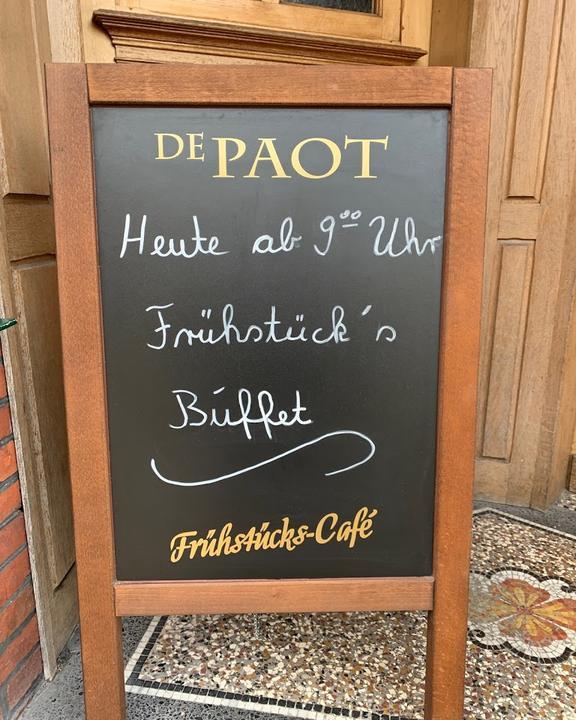 DE PAOT
Heute ab 9⁰⁰ Uhr
Frühstück´s
Búffet
Frühstücks-Café